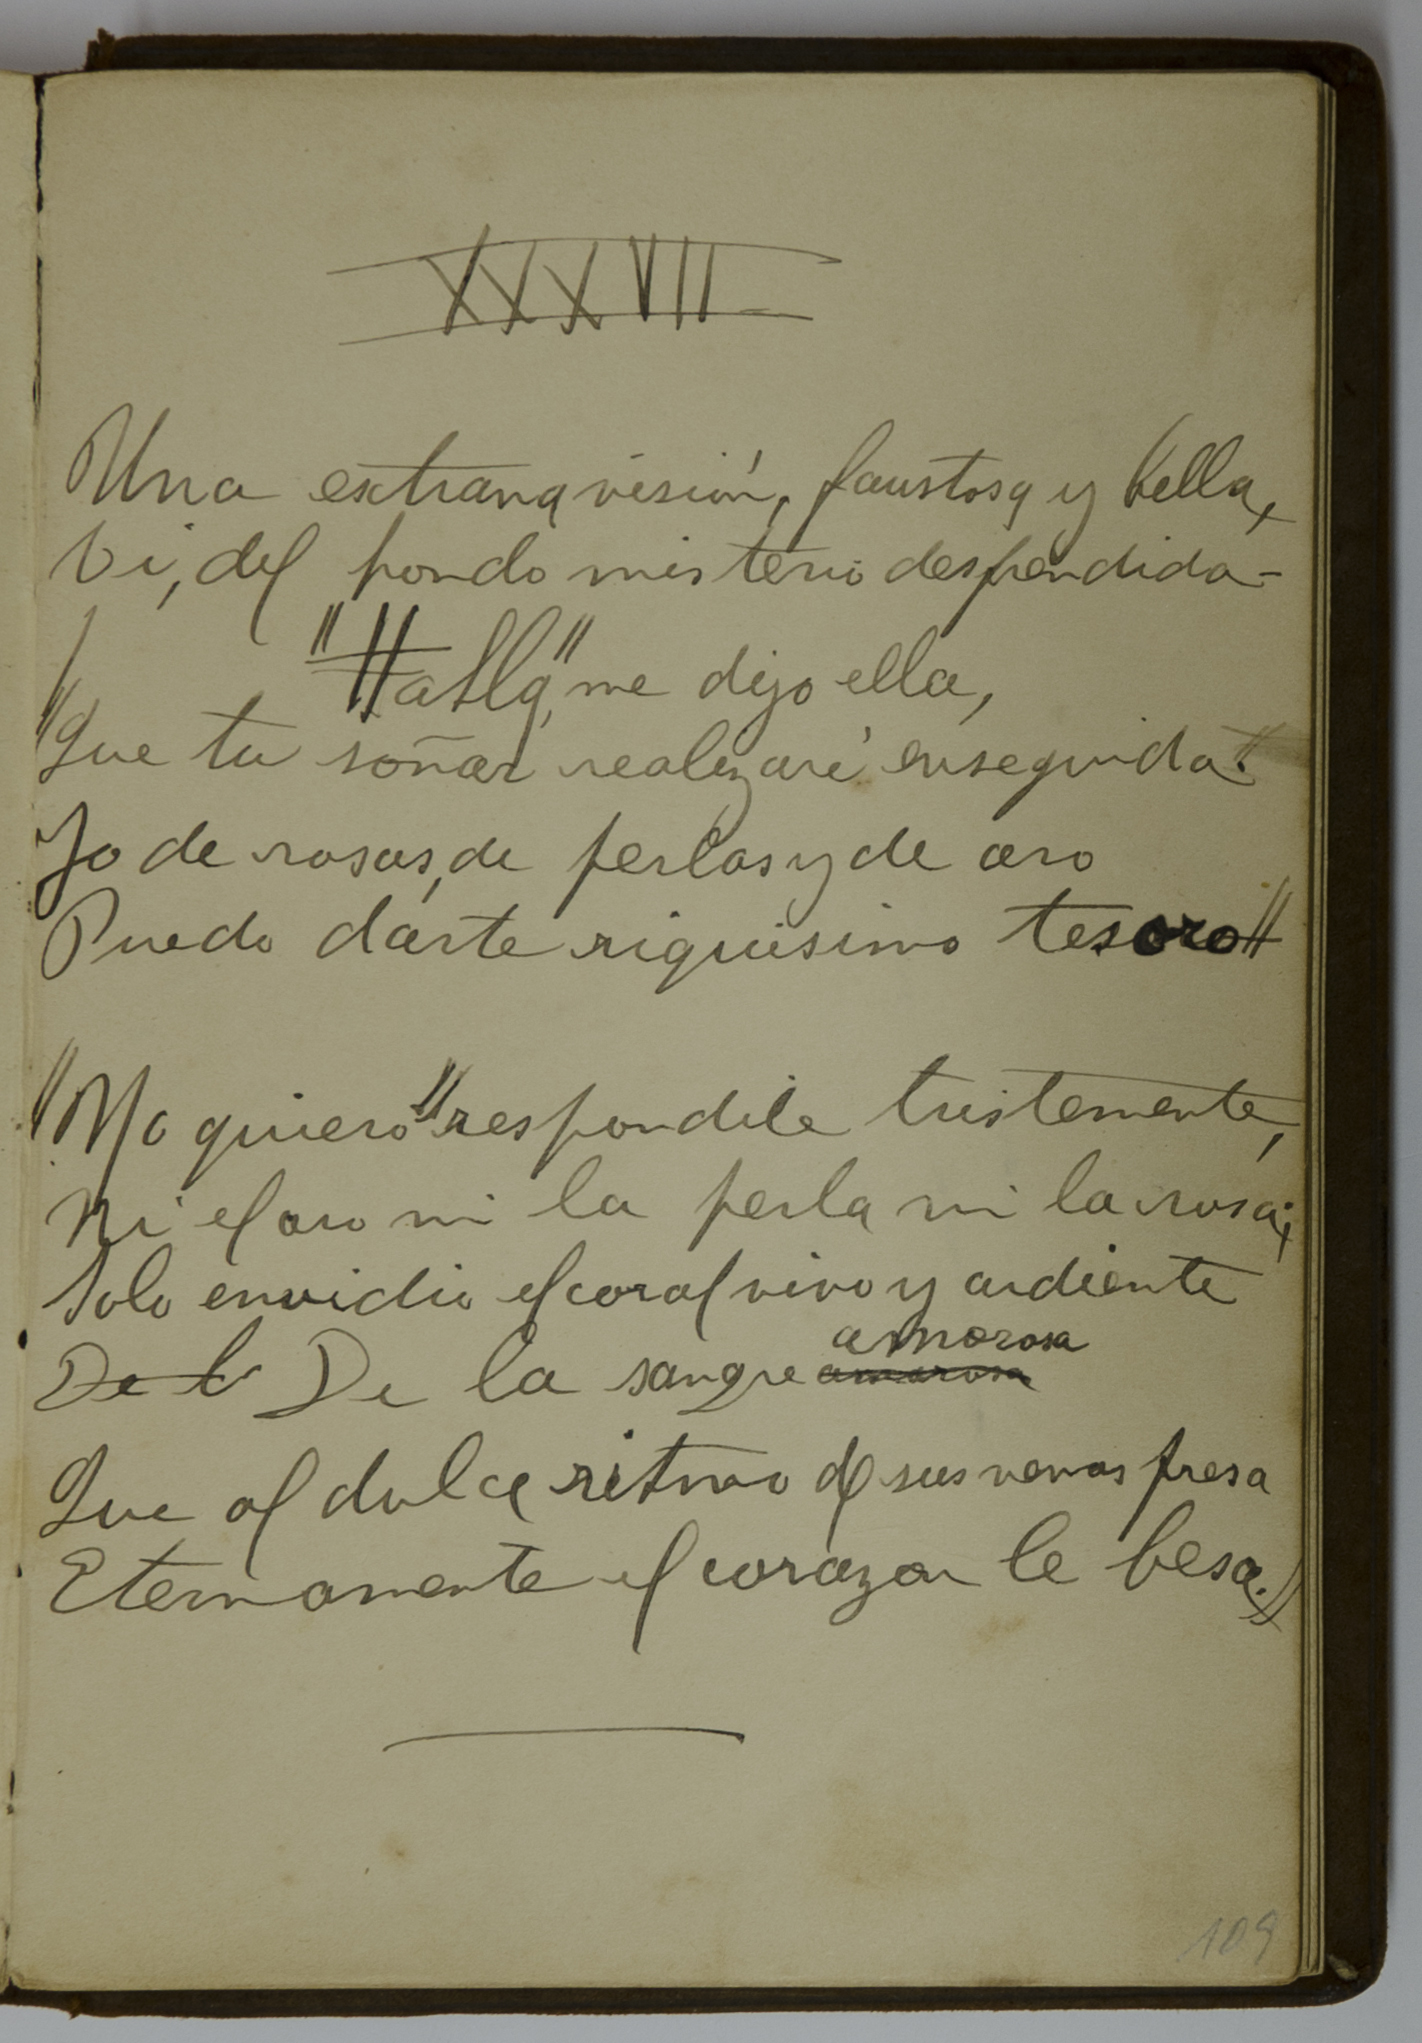 XXXVII
Una extrana visión, faustosa y bella,
Vi, del hondo misterio desprendida-
"Habla", me dijo ella,
"Que tu soñar realizaré enseguida."
Yo de rosas, de perlas y de oro
Puedo darte riquisimo tesoro"
"No quiero" respondile tristemente,
Ni el oro ni la perla ni la rosa;
Solo envidio el coral vivo y ardiente
amorosa
De l De la sangre amorosa
Que al dulce ritmo de sus venas presa
Eternamente el corazon le besa."
109